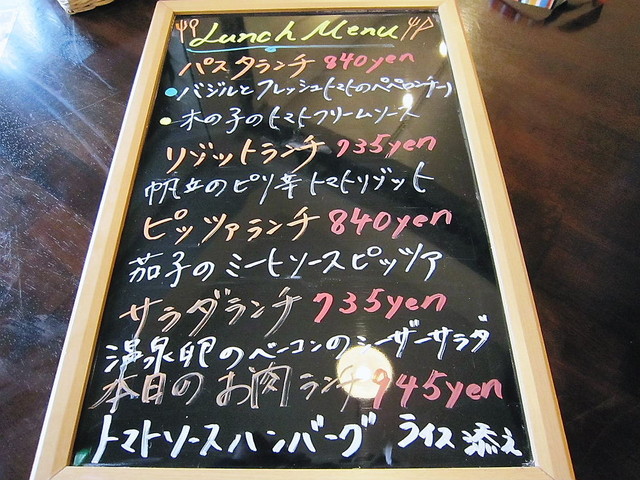 Lunch Menu
パスタランチ 840yen
バジルとフレッシュトマトのペペロンチーノ
木の子のトマトクリームソース
リゾットランチ 735yen
帆立のピリ辛トマトリゾット
ピッツァランチ 840yen
茄子のミートソースピッツァ
サラダランチ 735yen
温泉卵のベーコンのシーザーサラダ
本日のお肉ランチ 945yen
トマトソースハンバーグ ライス添え